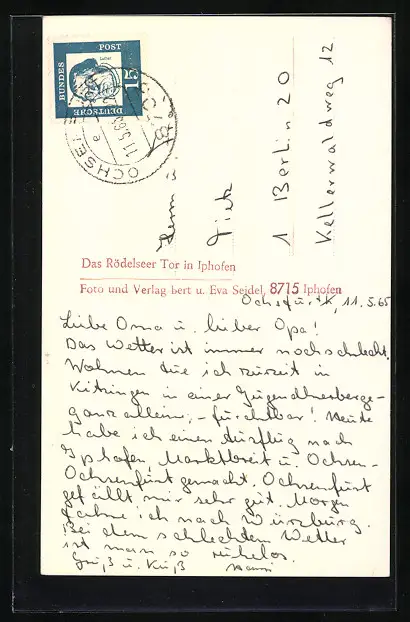 15
DEUTSCHE
BUNDES
POST
Luther
OCHSENFURT
11.5.65
Herrn u.
Tietz
1 Berlin 20
Kellerwaldweg 12
Das Rödelseer Tor in Iphofen
Foto und Verlag bert u. Eva Seidel, 8715 Iphofen
Ochsfurt, 11.5.65
Liebe Oma u. lieber Opa!
Das Wetter ist immer noch schlecht.
Wohnen tue ich zurzeit in
Kitzingen in einer Jugendherberge –
ganz allein; – furchtbar! Heute
habe ich einen Ausflug nach
Iphofen Marktbreit u. Ochsen-
Ochsenfurt gemacht. Ochsenfurt
gefällt mir sehr gut. Morgen
fahre ich nach Würzburg.
Bei dem schlechten Wetter
ist man so ruhelos.
Gruß u. Kuß